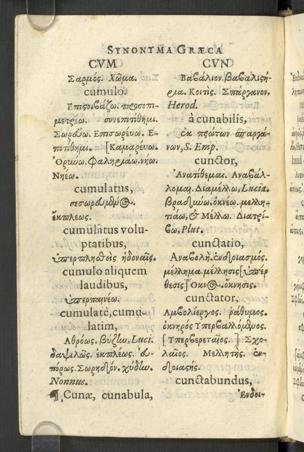 SYNONYMA GRÆCA
CVM
Σαρμός. Χῶμα.
cumulo.
Επιτοιβάζω. προσεπι-
μετρέω. συνεπιτίθημι.
Σωρεύω. Επισωρεύω. Ε-
πιτίθημι. [Καμαρεύω.
Νηέω.
cumulatus,
ἔκπλεως.
cumulatè volu-
ptatibus,
ὑπερπλησθεὶς ἡδοναῖς.
cumulo aliquem
laudibus,
ὑπερεπαινέω.
cumulatè, cumu-
latim,
Αθρόως. βύζην, Luci.
δαψιλῶς. ἐκπλέως. εὐ-
πόρως. Σωρηδὸν. χύδην.
Nonnus.
¶ Cunæ, cunabula,
CVN
Βαυκάλιον. βαυκαλιστή-
ρια. Κοιτίς. Σπάργανον,
Herod.
à cunabilis,
ἐκ πρώτων σπαργά-
νων, S. Emp.
cunctor,
Ανατίθεμαι. Αναβάλ-
λομαι. Διαμέλλω, Lucia.
βραδύνω. ὀκνέω. μελλη-
τιάω, & Μέλλω. Διατρί-
βω, Plut.
cunctatio,
Αναβολή. ἐνδοιασμός.
μέλλημα. μέλλησις [ὑπέρ
θεσις] Οκνος. ὄκνησις.
cunctator,
Αμβολίεργος. ῥάθυμος.
ὀκνηρός Υπερβαλλόμενος.
[Υπερβερεταῖος.] Σχο-
λαῖος. Μελλητής. ἐν-
δοιαστής.
cunctabundus,
Ενδοι-